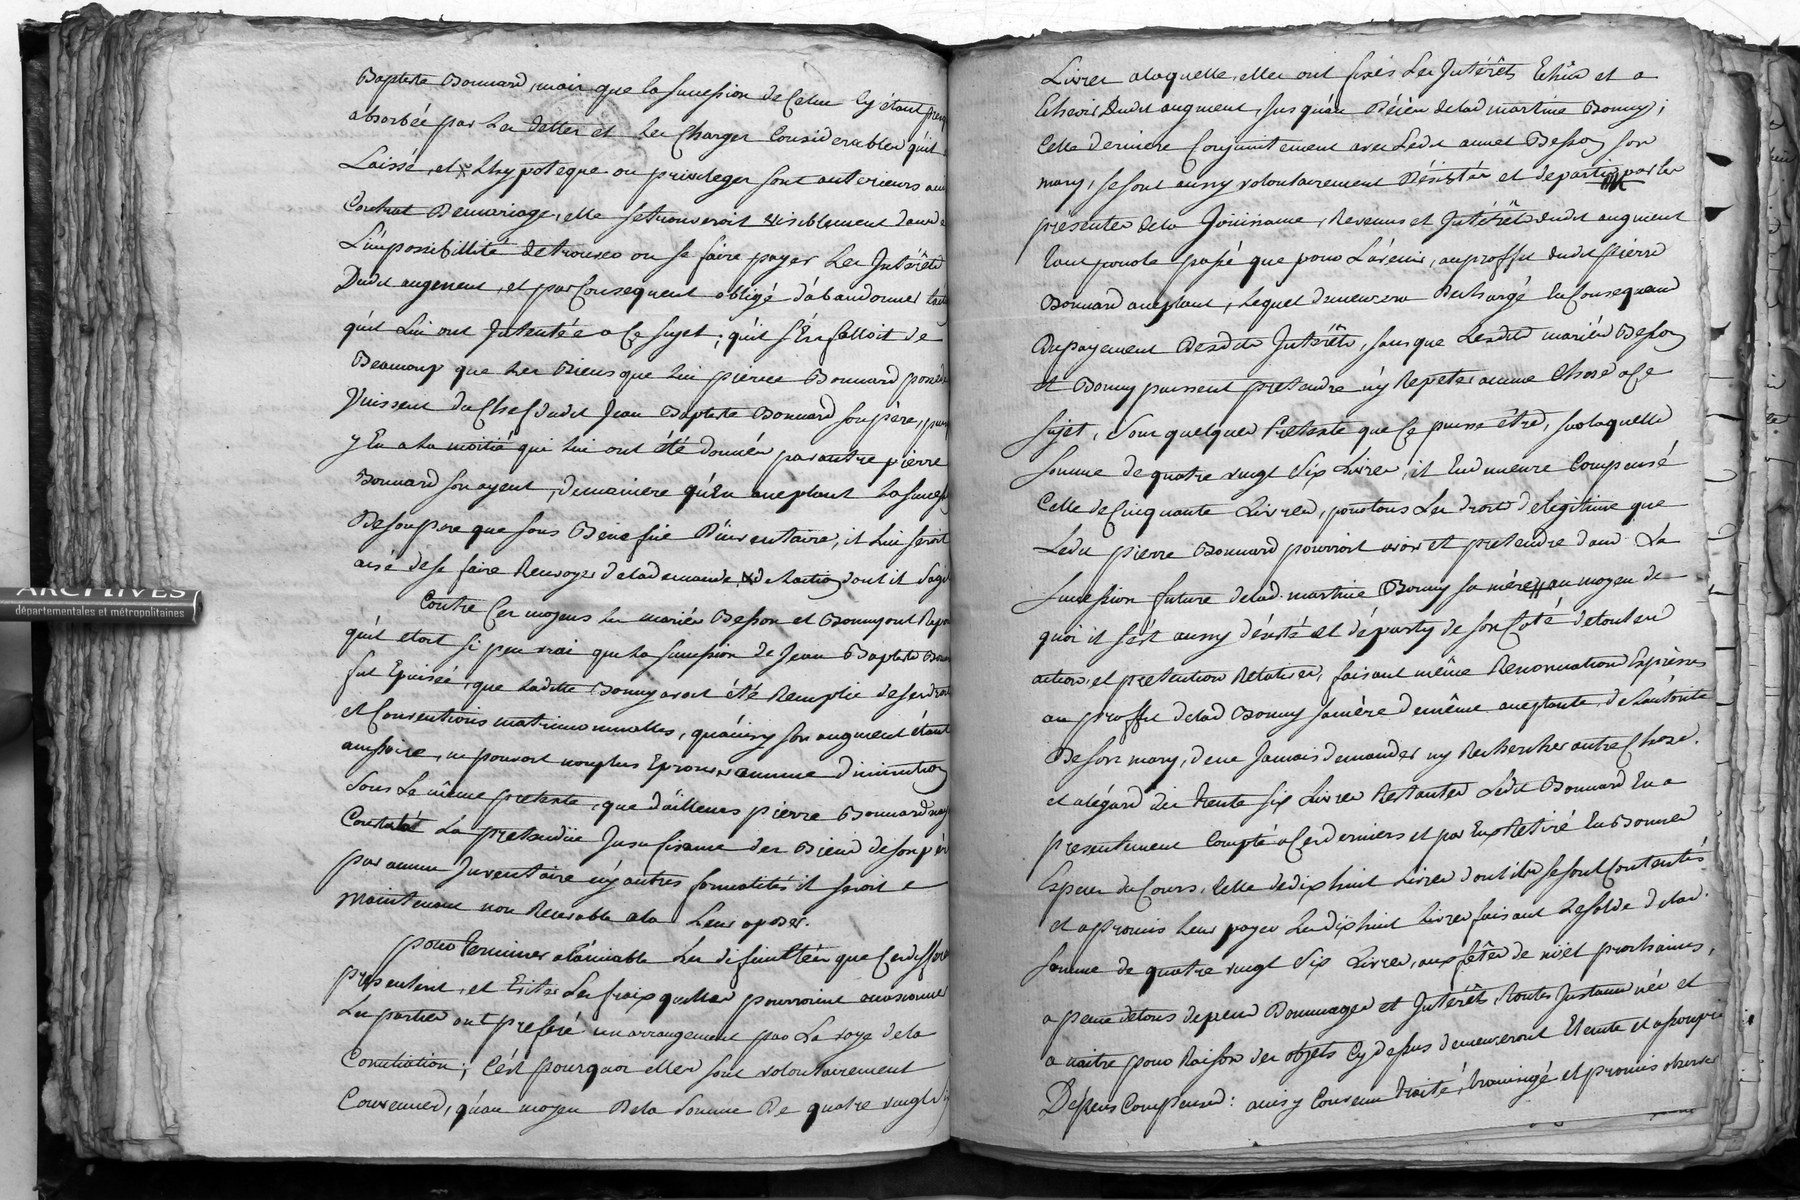 Baptiste Bonnard, mais que la succession de Celui Cy étant presq
absorbée par les dettes et les Charges Considerables qu'il
Laissé, et L'hypoteque ou privileges sont anterieurs au
Contrat De mariage, elle se trouveroit visiblement dans
L'impossibillité de trouver ou se faire payer Les Interêts
Dudit augment, et par Consequent obligé d'abandonner
qu'il Lui ont Intentée a Ce sujet; qu'il s'En falloit de
Beaucoup que Les Biens que Lui pierre Bonnard possede
Vinssent du Chef dudit Jean Baptiste Bonnard son père,
y En a La moitié qui Lui ont été donnés par autre pierre
Bonnard son ayeul, de maniere qu'En acceptant La succes
De son pere que sous Benefice D'inventaire, il Lui seroit
aisé de se faire Renvoyer de la demande de L'action dont il s'agit
Contre Ces moyens les mariés Besson et Bonny ont Repon
qu'il etoit si peu vrai que La succession de Jean Baptiste Bonn
fut Epuisée, que Ladite Bonny avoit été Remplie de ses droits
et Conventions matrimonnialles, qu'ainsy son augment étant
accessoire, ne pouvoit nonplus Eprouver aucune diminution
Sous Le même pretexte, que d'ailleurs pierre Bonnard nay
Constaté La pretendüe Insufisance des Biens de son pèr
par aucun Inventaire n'y autres formalités il seroit
Maintenant non Recevable a la Leur oposer.
pour terminer a L'aimiable Les dificultées que Ces
presentent, et Eviter Les fraix qu'elles pourroient occasionner
Les parties ont preferé un arrangement par La voye de la
Conciliation; C'est pourquoi elles sont volontairement
Convenues, qu'au moyen De la somme De quatre vingt
Livres a laquelle elles ont fixés Les Interêts Echûs et a
Echeoir Dudit augment, jusqu'au Décès de lad martine Bonny;
Cette derniere Conjointement avec Ledit annet Besson son
mary, se sont aussy volontairement Désistés et departis par les
presentes de la Jouissance, Revenus et Interêts dudit augment
tant pour le passé que pour L'avenir, au proffit dudit pierre
Bonnard acceptant, Lequel demeurera Dechargé En Consequence
Du payement Desdits Interêts, sans que Lesdits mariés Besson
et Bonny puissent pretendre n'y Repeter aucune Chose a Ce
sujet, sous quelques Pretexte que Ce puisse être, sur laquelle
somme de quatre vingt Six Livres, il En demeure Compensé
Celle de Cinquante Livres, pour tous Les droits de legitime que
Ledit pierre Bonnard pourroit avoir et pretendre dans La
Succession future de lad. martine Bonny sa mère au moyen de
quoi il s'est aussy désisté et départy de son Coté de toutes
actions et pretention Relatives, faisant même Renonciation Expresse
au proffit de lad Bonny sa mère de même acceptante, de L'autorité
De son mary, de ne Jamais demander ny Rechercher autre Chose.
et a l'égard des trente six Livres Restantes Ledit Bonnard En a
presentement Compté a Ces derniers et par Eux Retiré En Bonnes
Especes du Cours, Celle de dix huit Livres dont ils se sont Contentés
et a promis Leur payer Les dix huit Livres faisant Le solde de lad.
somme de quatre vingt Six Livres, aux fêtes de noël prochaines,
a peine de tous depens Dommages et Interêts, toutes Instances nées et
a naitre pour Raison des objets Cy dessus demeureront Eteintes et assoupies
Depens Compensés: ainsy Convenu traité, transigé et promis observer